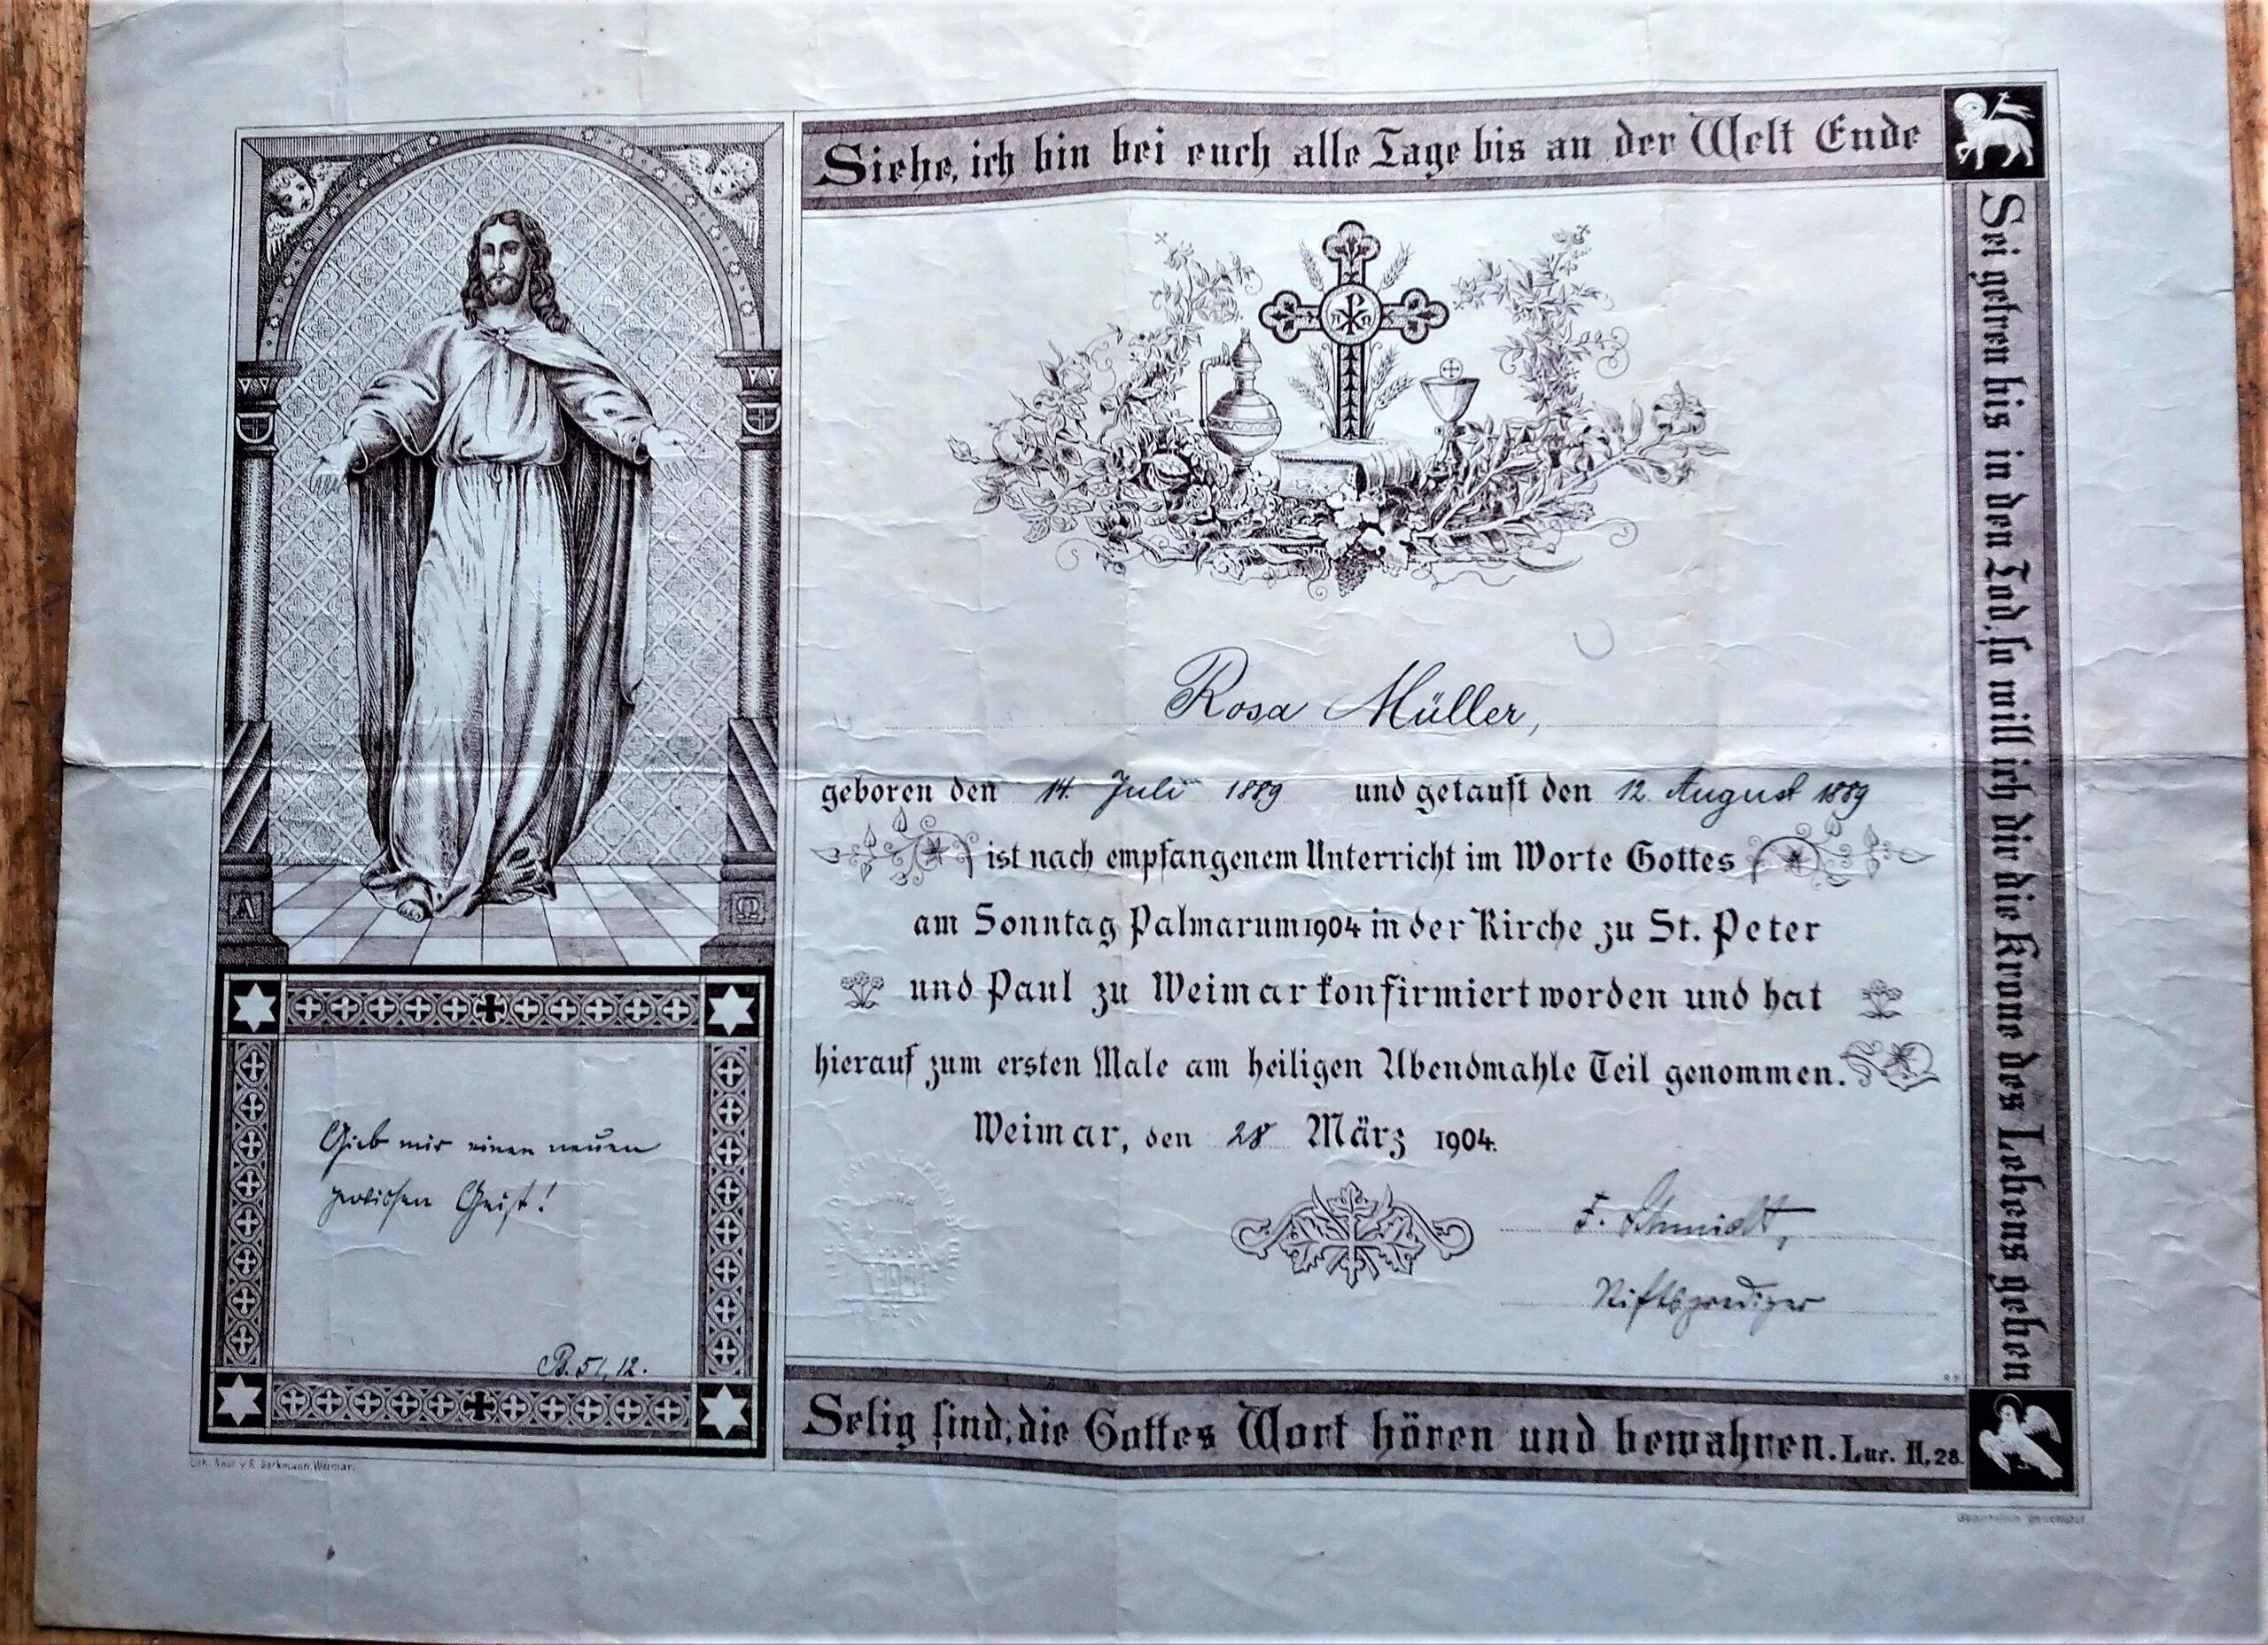 Siehe, ich bin bei euch alle Tage bis an der Welt Ende
Sei getreu bis in den Tod, so will ich dir die Krone des Lebens geben
Rosa Müller,
geboren den 14. Juli 1889 und getauft den 12. August 1889
ist nach empfangenem Unterricht im Worte Gottes
am Sonntag Palmarum 1904 in der Kirche zu St. Peter
und Paul zu Weimar konfirmiert worden und hat
hierauf zum ersten Male am heiligen Abendmahle Teil genommen.
Weimar, den 28 März 1904.
F. Schmidt,
Stiftsprediger
Gieb mir einen neuen
gewissen Geist!
Ps. 51, 12.
Selig sind, die Gottes Wort hören und bewahren. Luc. 11, 28.
Lith. Anst. v. Weimar.
Gesetzlich geschützt